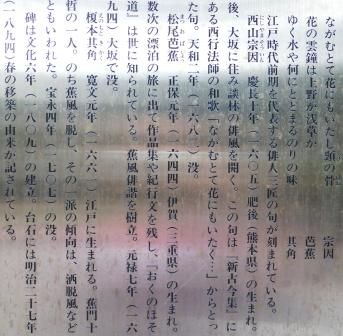 ながむとて花にもいたし頸の骨　宗因
花の雲鐘は上野か浅草か　芭蕉
ゆく水や何にとまるのりの味　其角
江戸時代前期を代表する俳人三匠の句が刻まれている。
西山宗因　慶長十年（一六〇五）肥後（熊本県）の生まれ。
後、大坂に住み談林の俳風を開く。この句は『新古今集』に
ある西行法師の和歌「ながむとて花にもいたく…」からとっ
た句。天和二年（一六八二）没。
松尾芭蕉　正保元年（一六四四）伊賀（三重県）の生まれ。
数次の漂泊の旅に出て作品集や紀行文を残し、『おくのほそ
道』は世に知られている。蕉風俳諧を樹立。元禄七年（一六
九四）大坂で没。
榎本其角　寛文元年（一六六一）江戸に生まれる。蕉門十
哲の一人。のち蕉風を脱し、その一派の傾向は、洒脱風など
ともいわれた。宝永四年（一七〇七）の没。
碑は文化六年（一八〇九）の建立。台石には明治二十七年
（一八九四）春の移築の由来が記されている。